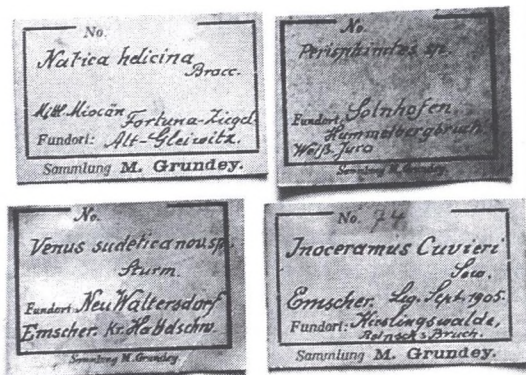 No.
Natica helicina
Brocc.
Mittl. Miocän
Fortuna-Ziegel.
Fundort: Alt-Gleiwitz.
Sammlung M. Grundey.
No.
Perisphinctes sp.
Fundort Solnhofen
Hummelbergbruch.
Weiß. Jura
Sammlung M. Grundey.
No.
Venus sudetica nov. sp.
Sturm.
Fundort Neu Waltersdorf
Emscher. Kr. Habelschw.
Sammlung M. Grundey.
No. 74
Inoceramus Cuvieri
Sow.
Emscher. Leg. Sept. 1905.
Fundort: Kieslingswalde,
Bruch.
Sammlung M. Grundey.